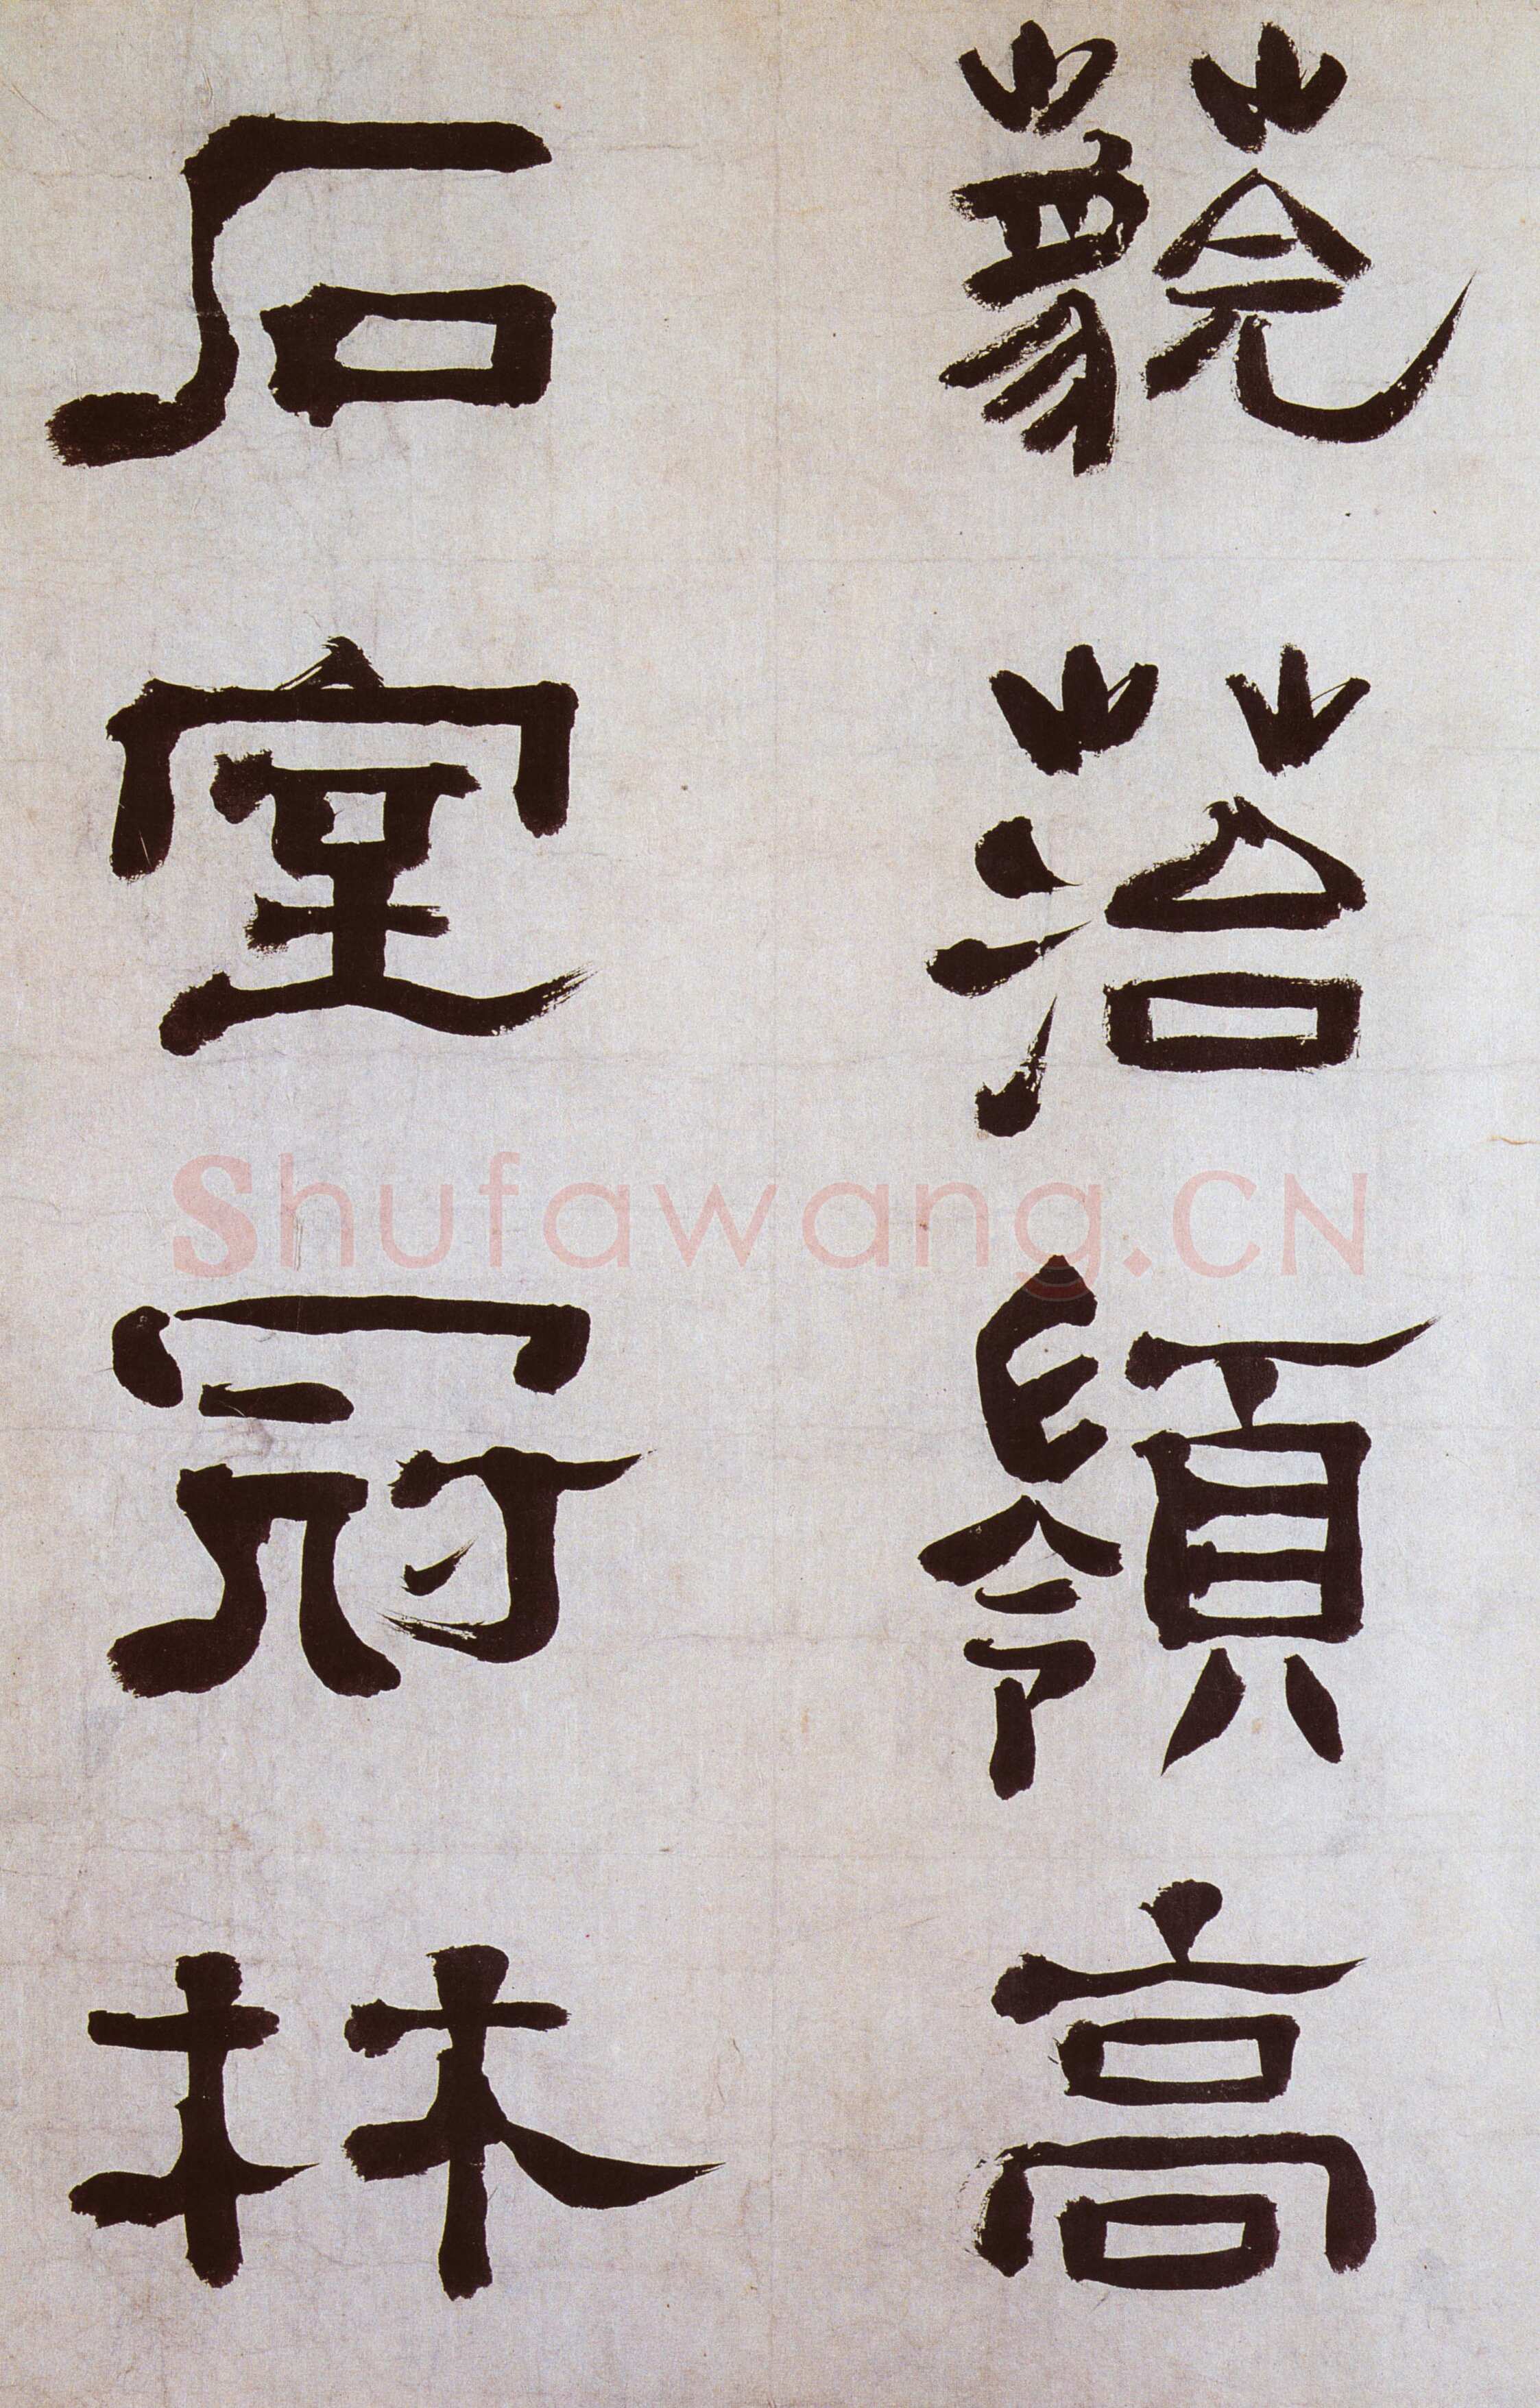 藐菭嶺高
石室冠林
Shufawang.CN